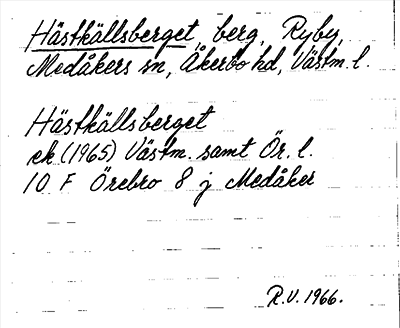 Hästkällsberget, berg, Ryby,
Medåkers sn, Åkerbo hd, Västm. l.
Hästkällsberget
ek. (1965) Västm. samt Ör. l.
10 F Örebro 8 j Medåker
R.V. 1966.